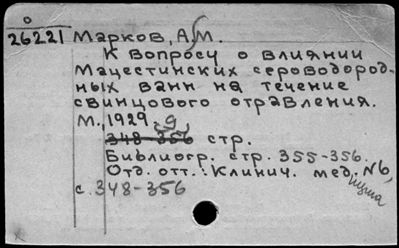 26221 Марков, А. М.
К вопросу о влиянии
Мацестинских сероводород-
ных ванн на течение
свинцового отравления.
М., 1929. 9
348-356 стр.
Библиогр. стр. 355-356.
Отд. отт.: Клинич. медицина, №6,
с. 348-356